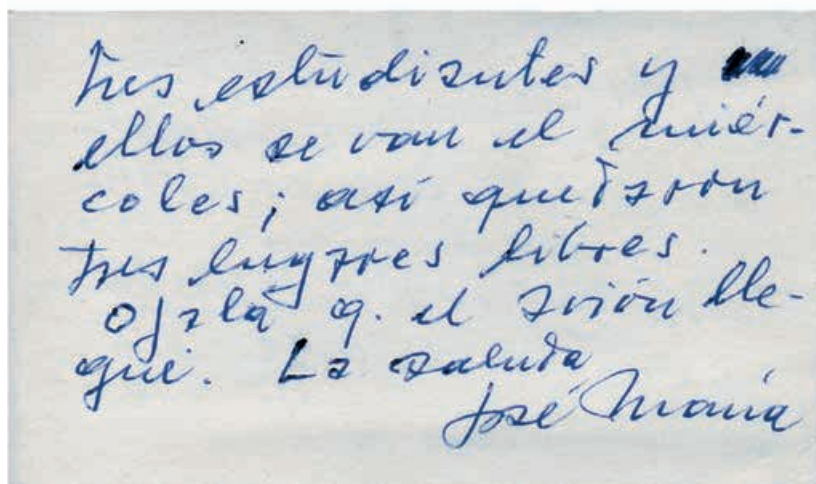 tres estudiantes y
ellos se van el miér-
coles; así quedarán
tres lugares libres.
Ojalá q. el avión lle-
gue. La saluda
José María